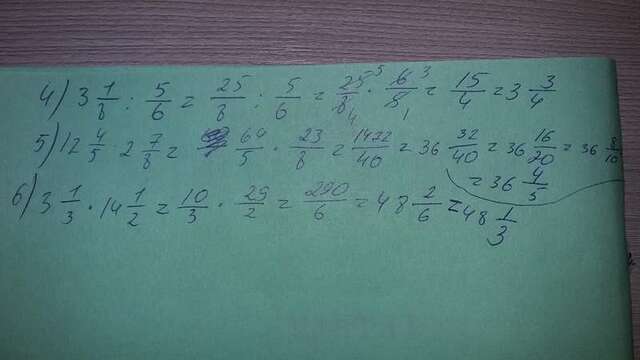 4) 3 1/8 : 5/6 = 25/8 : 5/6 = 25/8 · 6/5 = 15/4 = 3 3/4
5) 12 4/5 · 2 7/8 = 64/5 · 23/8 = 1472/40 = 36 32/40 = 36 16/20 = 36 8/10
= 36 4/5
6) 3 1/3 · 14 1/2 = 10/3 · 29/2 = 290/6 = 48 2/6 = 48 1/3